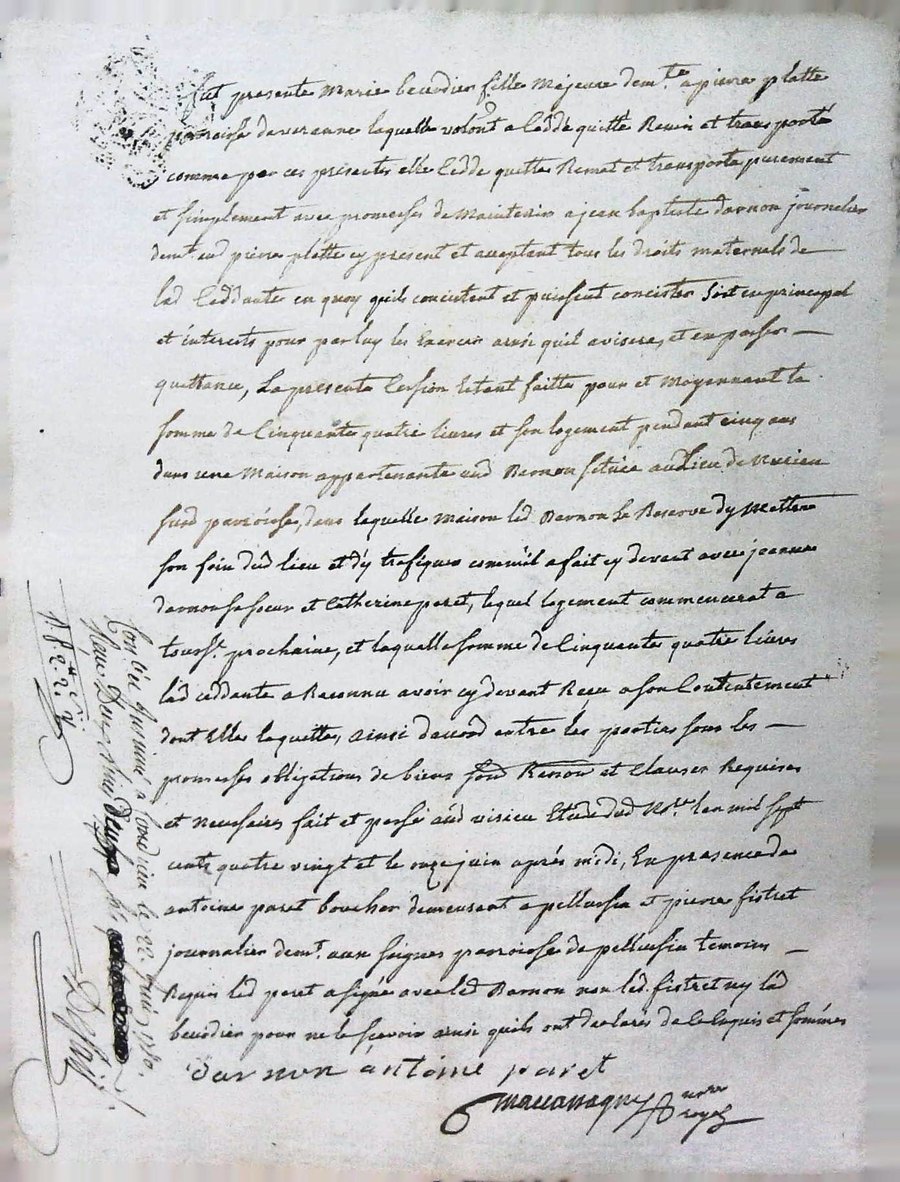 fut presente Marie beurdier fille Majeure demte a pierre platte
paroisse de veranne laquelle volont a ceddé quitte Remis et transporté
comme par ces presentes elle cedde quitte Remet et transporte purement
et simplement avec promesses de Maintenir a jean baptiste darnon journalier
demt aud pierre platte cy present et acceptant tous les droits maternels de
lad Ceddante en quoy quils concistent et puissent concister soit en principal
et interests pour par luy les Exercer ainsi quil avisera, et en passer
quittance, La presente Cession Estant faitte pour et Moyennant la
somme de Cinquante quatre livres et son logement pendant cinq ans
dans une Maison appartenante aud Darnon scituée au Lieu de
surd paroisse, dans laquelle maison led Darnon se Reserve dy Mettre
son foin dud lieu et d'y trafiquer comm'il a fait cy devant avec jeanne
darnon sa soeur et Catherine paret, lequel logement commencerat a
touss.t prochaine, et laquelle somme de Cinquante quatre livres
lad ceddante a Reconnu avoir cy devant Reçu a son Contentement
dont Elle le quitte, ainsi d'acord entre les parties sous les
promesses obligations de biens Renon et Clauses Requises
et necessaires fait et passé aud virieu Etude dud No.re lan mil sept
cents quatre vingt et le onze juin après midi, En presence de
antoine paret boucher demeurant a pellussin et pierre fistret
journalier demt. aux soignes paroisse de pellussin temoins
Requis led paret a signé avec led Darnon non led. fistret ny lad
beurdier pour ne le sçavoir ainsi quils ont declarés de ce Enquis et sommés
Darnon antoine paret
nore
royal
Conlée Insinué a le 22 juin 1780.